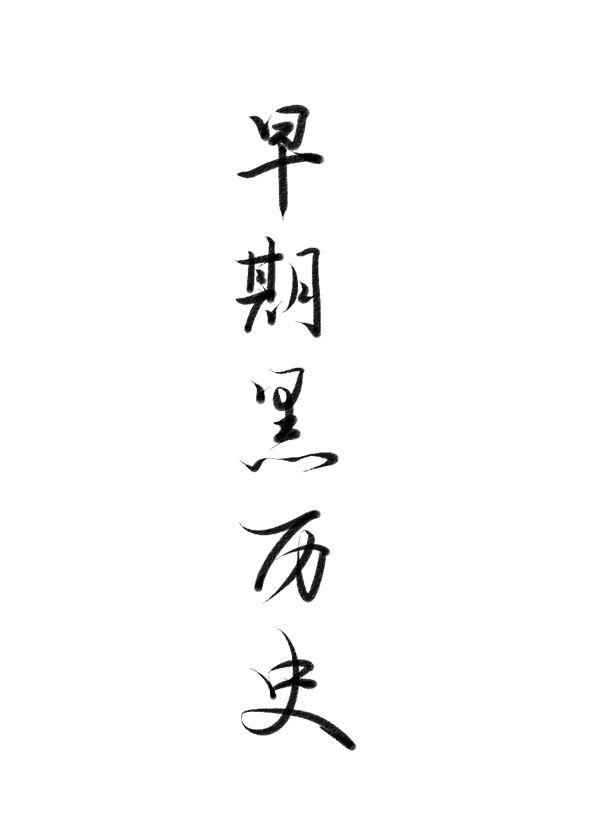 早期黑历史